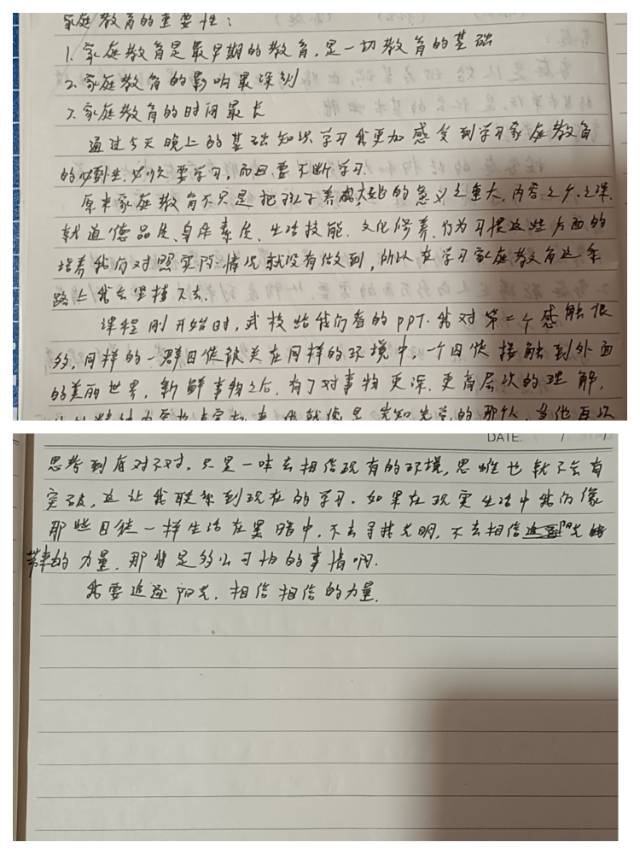 家庭教育的重要性:
1.家庭教育是最早期的教育,是一切教育的基础
2.家庭教育的影响最深刻
3.家庭教育的时间最长
通过5天晚上的基础知识学习我更加感受到学习家庭教育
的必要要学习,而且要不断学习.
原来家庭教育不只是把孩子养大的意义之重大,内容之多,之深.
就道德品质、身体素质、生活技能、文化修养、行为习惯这些方面的
培养我们对照实际情况就没有做到,所以在学习家庭教育这条
路上我会坚持下去.
课程刚开始时,武校给我们看的PPT.我对第二个感触很
多,同样的一群囚徒被关在同样的环境中,一个囚徒接触到外面
的美丽世界,新鲜事物之后,有了对事物更深、更高层次的理解,
思考到底对不对,只是一味去相信现有的环境,思维也就不会有
突破,这让我联系到现在的学习.如果在现实生活中我们像
那些囚徒一样生活在黑暗中,不去寻找光明,不去相信阳光
带来的力量,那将是多么可怕的事情啊.
我要追逐阳光,相信相信的力量.
DATE. / /